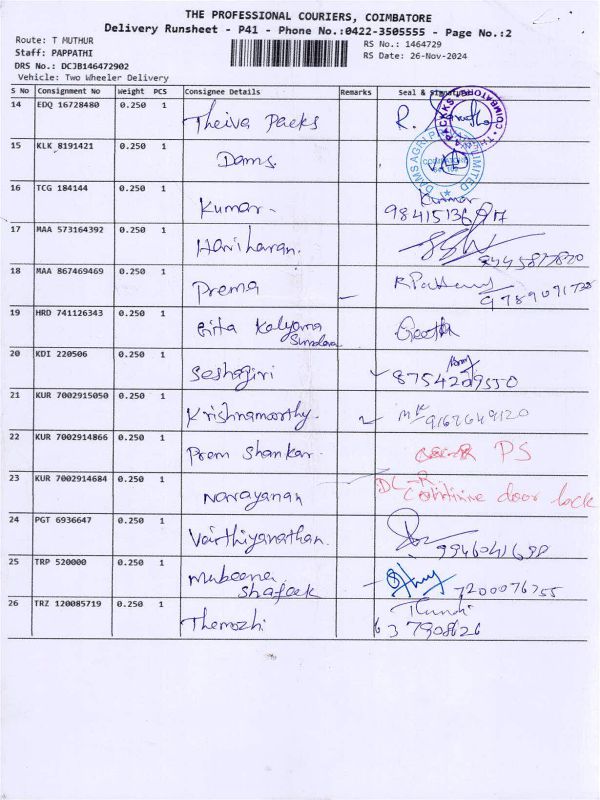 THE PROFESSIONAL COURIERS, COIMBATORE
Delivery Runsheet - P41 - Phone No.:0422-3505555 - Page No.:2
Route: T MUTHUR
RS No.: 1464729
Staff: PAPPATHI
RS Date: 26-Nov-2024
DRS No.: DCJB146472902
Vehicle: Two Wheeler Delivery
S No Consignment No Weight PCS Consignee Details Remarks Seal & Signature
14 EDQ 16728480 0.250 1 Theiva Packs R.
15 KLK 8191421 0.250 1 Dams
16 TCG 184144 0.250 1 Kumar. Kumar
17 MAA 573164392 0.250 1 Hariharan.
18 MAA 867469469 0.250 1 Prema
19 HRD 741126343 0.250 1 Gita Kalyana Geetha
20 KDI 220506 0.250 1 Seshagiri 8754209550
21 KUR 7002915050 0.250 1 Krishnamoorthy.
22 KUR 7002914866 0.250 1 Prem Shankar. PS
23 KUR 7002914684 0.250 1 Narayanan DL-R
door lock
24 PGT 6936647 0.250 1 Vaithiyanathan.
25 TRP 520000 0.250 1 Mubeena
Shafeek 7200076755
26 TRZ 120085719 0.250 1 Themozhi